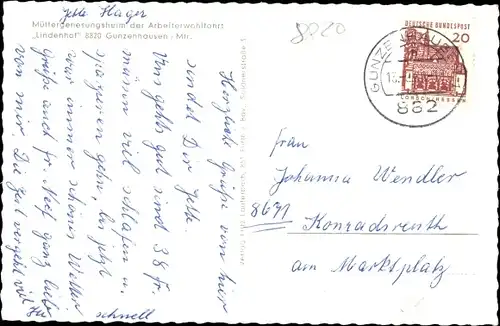 Jette Hager
Müttergenesungsheim der Arbeiterwohlfahrt
"Lindenhof" 8820 Gunzenhausen - Mfr.
8820
DEUTSCHE BUNDESPOST
20
LORSCH/HESSEN
GUNZENHAUSEN
882
Herzliche Grüße von hier
sendet Dir Jette.
Uns gehts gut sind 38 Fr.
müssen viel schlafen u.
spazieren gehn, bis jetzt
war immer schönes Wetter
Grüße auch Fr. Neef ganz lieb
von mir. Die Zeit vergeht viel zu
schnell
Frau
Johanna Wendler
8671
Konradsreuth
am Marktplatz